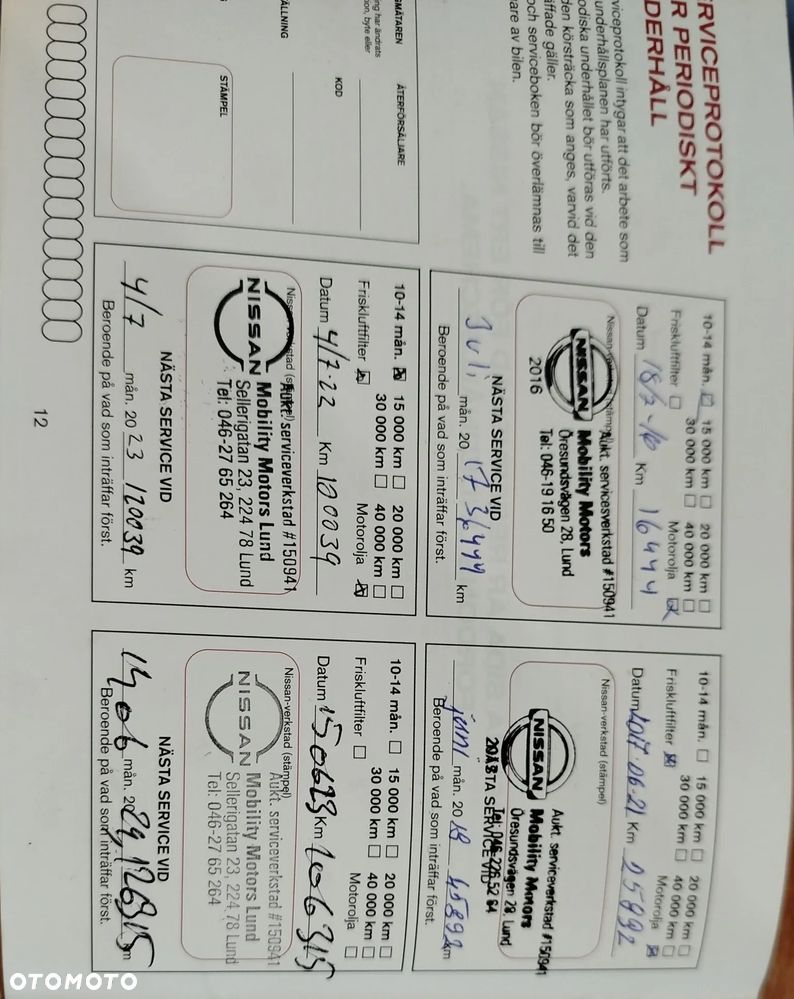 SERVICEPROTOKOLL
PERIODISKT
viceprotokoll intygar att det arbete som
underhållsplanen har utförts.
odiska underhållet bör utföras vid den
den körsträcka som anges, varvid det
äffade gäller.
och serviceboken bör överlämnas till
are av bilen.
ÅTERFÖRSÄLJARE
KOD
STÄMPEL
10-14 mån. 15 000 km 20 000 km
30 000 km 40 000 km
Friskluftfilter Motorolja
Datum 18/7-16 Km 16444
Nissan-verkstad (stämpel)
Aukt. servicesverkstad #150941
NISSAN Mobility Motors
Öresundsvägen 28, Lund
2016 Tel: 046-19 16 50
NÄSTA SERVICE VID
Juli mån. 20 17 km
Beroende på vad som inträffar först.
10-14 mån. 15 000 km 20 000 km
30 000 km 40 000 km
Friskluftfilter Motorolja
Datum 2017-06-21 Km 25892
Nissan-verkstad (stämpel)
Aukt. serviceverkstad #150941
NISSAN Mobility Motors
Öresundsvägen 28, Lund
NÄSTA SERVICE VID
juni mån. 20 18 45892 km
Beroende på vad som inträffar först.
10-14 mån. 15 000 km 20 000 km
30 000 km 40 000 km
Friskluftfilter Motorolja
Datum 4/7-22 Km 100039
Nissan-verkstad (stämpel)
Aukt. serviceverkstad #150941
NISSAN Mobility Motors Lund
Sellerigatan 23, 224 78 Lund
Tel: 046-27 65 264
NÄSTA SERVICE VID
4/7 mån. 20 23 120039 km
Beroende på vad som inträffar först.
10-14 mån. 15 000 km 20 000 km
30 000 km 40 000 km
Friskluftfilter Motorolja
Datum 150623 Km 106315
Nissan-verkstad (stämpel)
Aukt. serviceverkstad #150941
NISSAN Mobility Motors Lund
Sellerigatan 23, 224 78 Lund
Tel: 046-27 65 264
NÄSTA SERVICE VID
1506 mån. 20 24, 126315 km
Beroende på vad som inträffar först.
12
OTOMOTO